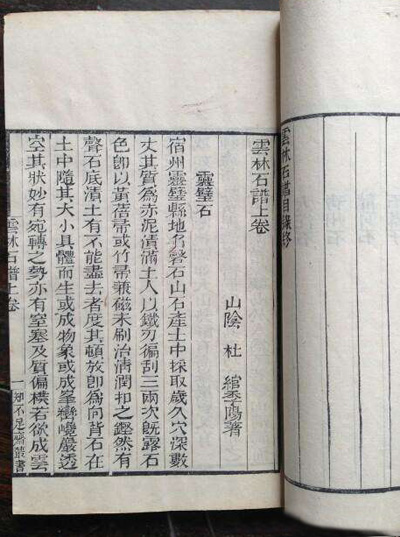 雲林石譜目錄終
雲林石譜上卷
山陰 杜 綰季陽著
靈璧石
宿州靈璧縣地名磬石山石產土中採取歲久穴深數
丈其質為赤泥漬滿土人以鐵刃徧刮三兩次既露石
色即以黃蓓帚或竹帚兼磁末刷治清潤扣之鏗然有
聲石底漬土有不能盡去者度其頓放即為向背石在
土中隨其大小具體而生或成物象或成峯巒巉巖透
空其狀妙有宛轉之勢亦有窒塞及質偏樸若欲成雲
雲林石譜上卷
一 知不足齋叢書